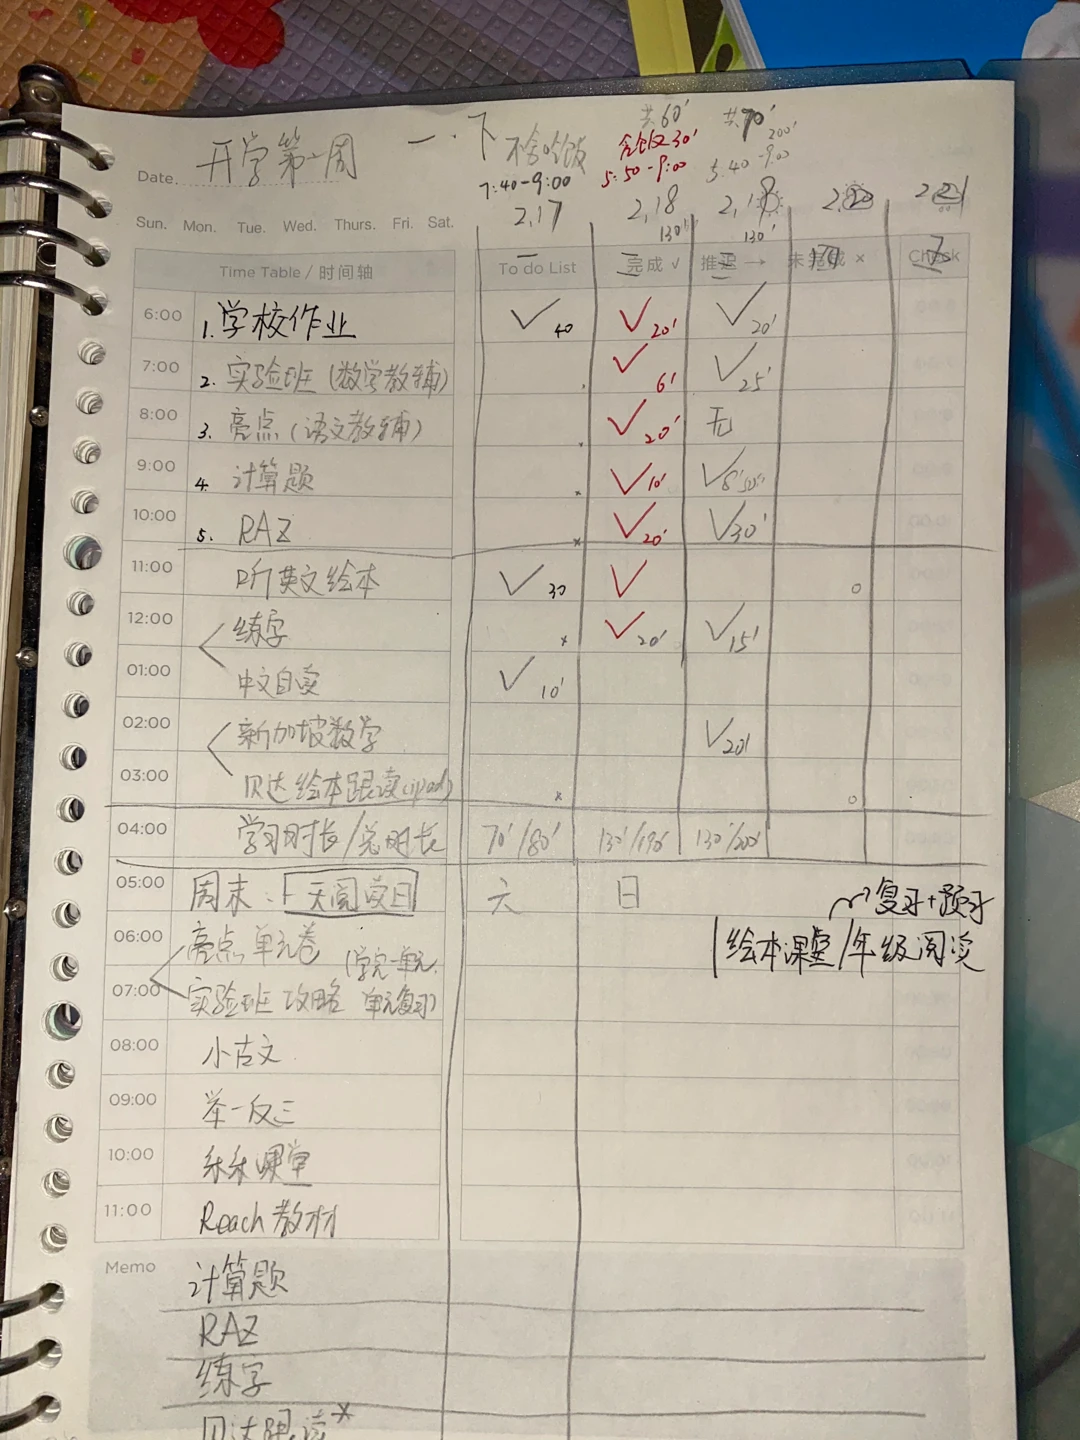 开学第一周 一.下 不含吃饭 共60' 共70'
含饭30' 200'
7:40-9:00 5:50-9:00 5:40-9:00
Date.
2.17 2.18 2.18 2.20 2.21
130' 130'
Sun. Mon. Tue. Wed. Thurs. Fri. Sat.
Time Table / 时间轴 To do List 一 完成 √ 二 推迟 → 三 未完成 × 四 Check
6:00 1. 学校作业 ✓40 ✓20' ✓20'
7:00 2. 实验班(数学教辅) ✓6' ✓25'
8:00 3. 亮点(语文教辅) ✓20' 无
9:00 4. 计算题 × ✓10' ✓8'50"
10:00 5. RAZ × ✓20' ✓30'
11:00 听英文绘本 ✓30 ✓
12:00 练字 × ✓20' ✓15'
01:00 中文自读 ✓10'
02:00 新加坡数学 ✓20'
03:00 贝达绘本跟读(ipad) ×
04:00 学习时长/总时长 70'/80' 130'/190' 130'/200'
05:00 周末: 天阅读日 六 日
复习+预习
06:00 亮点 单元卷 (学完一单元
绘本课堂/年级阅读
07:00 实验班 攻略 单元复习)
08:00 小古文
09:00 举一反三
10:00 禾禾课堂
11:00 Reach教材
Memo 计算题
RAZ
练字
贝达跟读×